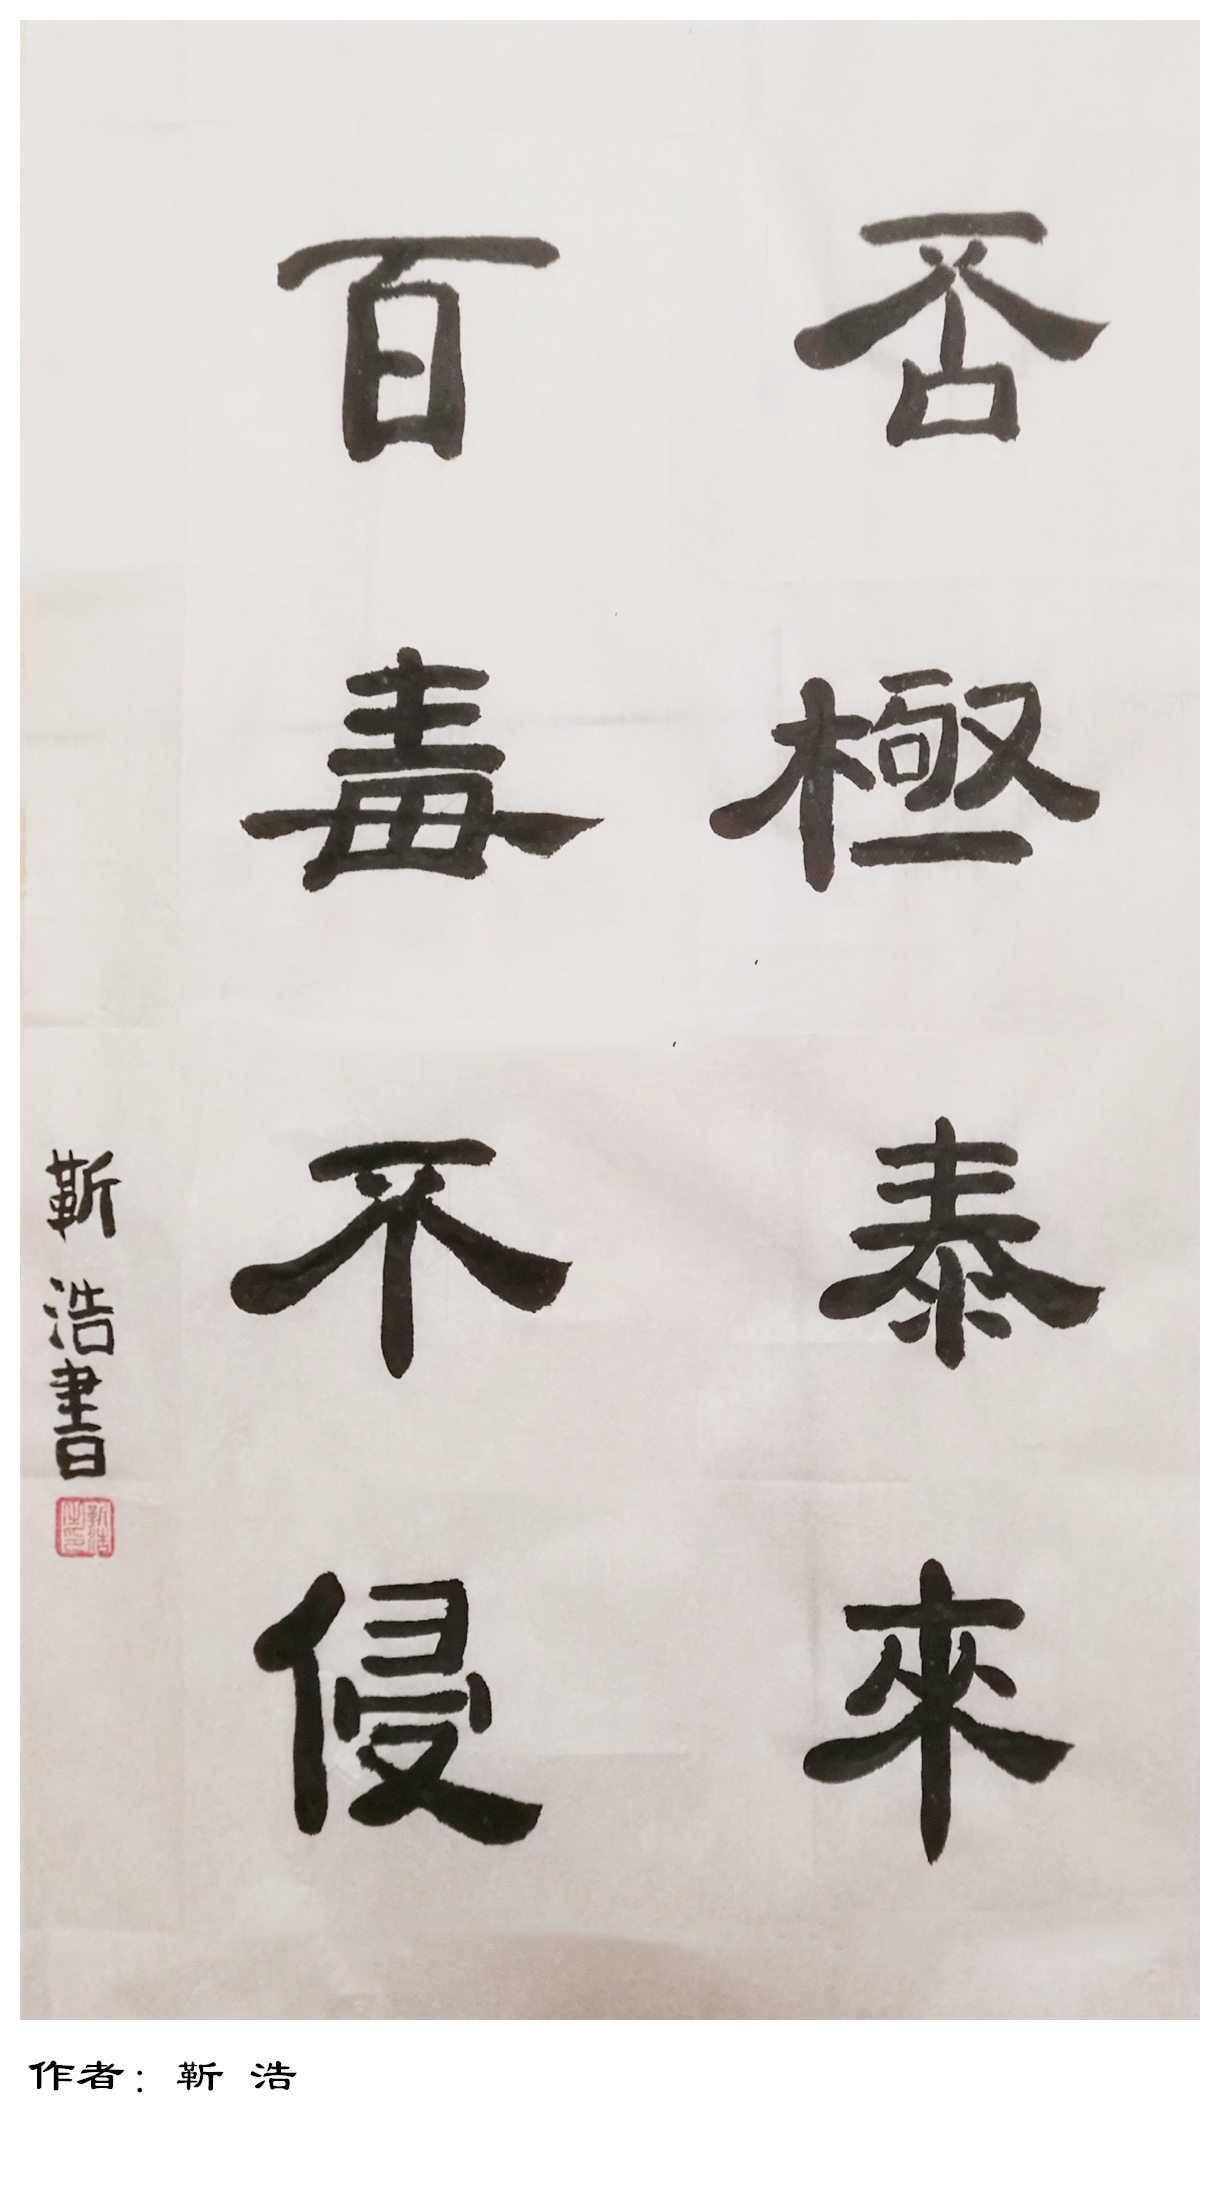 否極泰來
百毒不侵
靳浩書
靳浩之印
作者：靳 浩